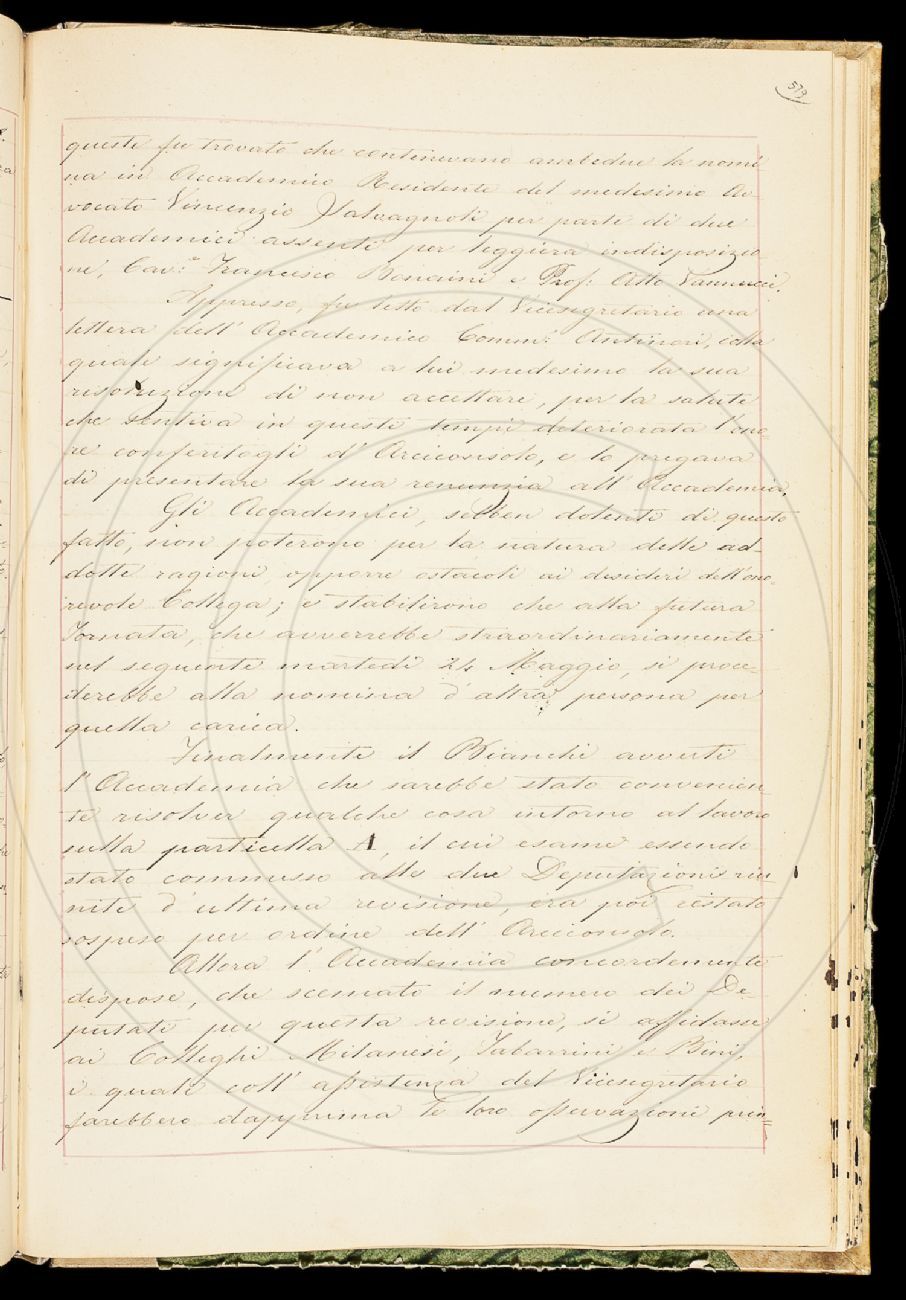 579
queste fu trovato che contenevano ambedue la nomi-
na in Accademico Residente del medesimo Av-
vocato Vincenzio Salvagnoli per parte di due
Accademici assenti per leggiera indisposizio-
ne, Cav.e Francesco Bonaini e Prof: Atto Vannucci.
Appresso, fu letto dal Vicesegretario una
lettera dell' Accademico Comm.e Antinori, colla
quale significava a lui medesimo la sua
risoluzione di non accettare, per la salute
che sentiva in questi tempi deteriorata l'ono-
re conferitogli d' Arciconsolo, e lo pregava
di presentare la sua renunzia all' Accademia.
Gli Accademici, sebben dolenti di questo
fatto, non poterono per la natura delle ad-
dotte ragioni opporre ostacoli ai desideri dell'ono-
revole Collega; e stabilirono che alla futura
Tornata, che avverrebbe straordinariamente
nel seguente martedì 24 Maggio, si proce-
derebbe alla nomina d' altra persona per
quella carica.
Finalmente il Bianchi avvertì
l' Accademia che sarebbe stato convenien-
te risolver qualche cosa intorno al lavoro
sulla particella A, il cui esame essendo
stato commesso alle due Deputazioni riu-
nite d' ultima revisione, era poi restato
sospeso per ordine dell' Arciconsolo.
Allora l' Accademia concordemente
dispose, che scemato il numero dei De-
putati per questa revisione, si affidasse
ai Colleghi Milanesi, Tabarrini e Bini,
i quali coll' assistenza del Vicesegretario
farebbero dapprima le loro osservazioni prin-